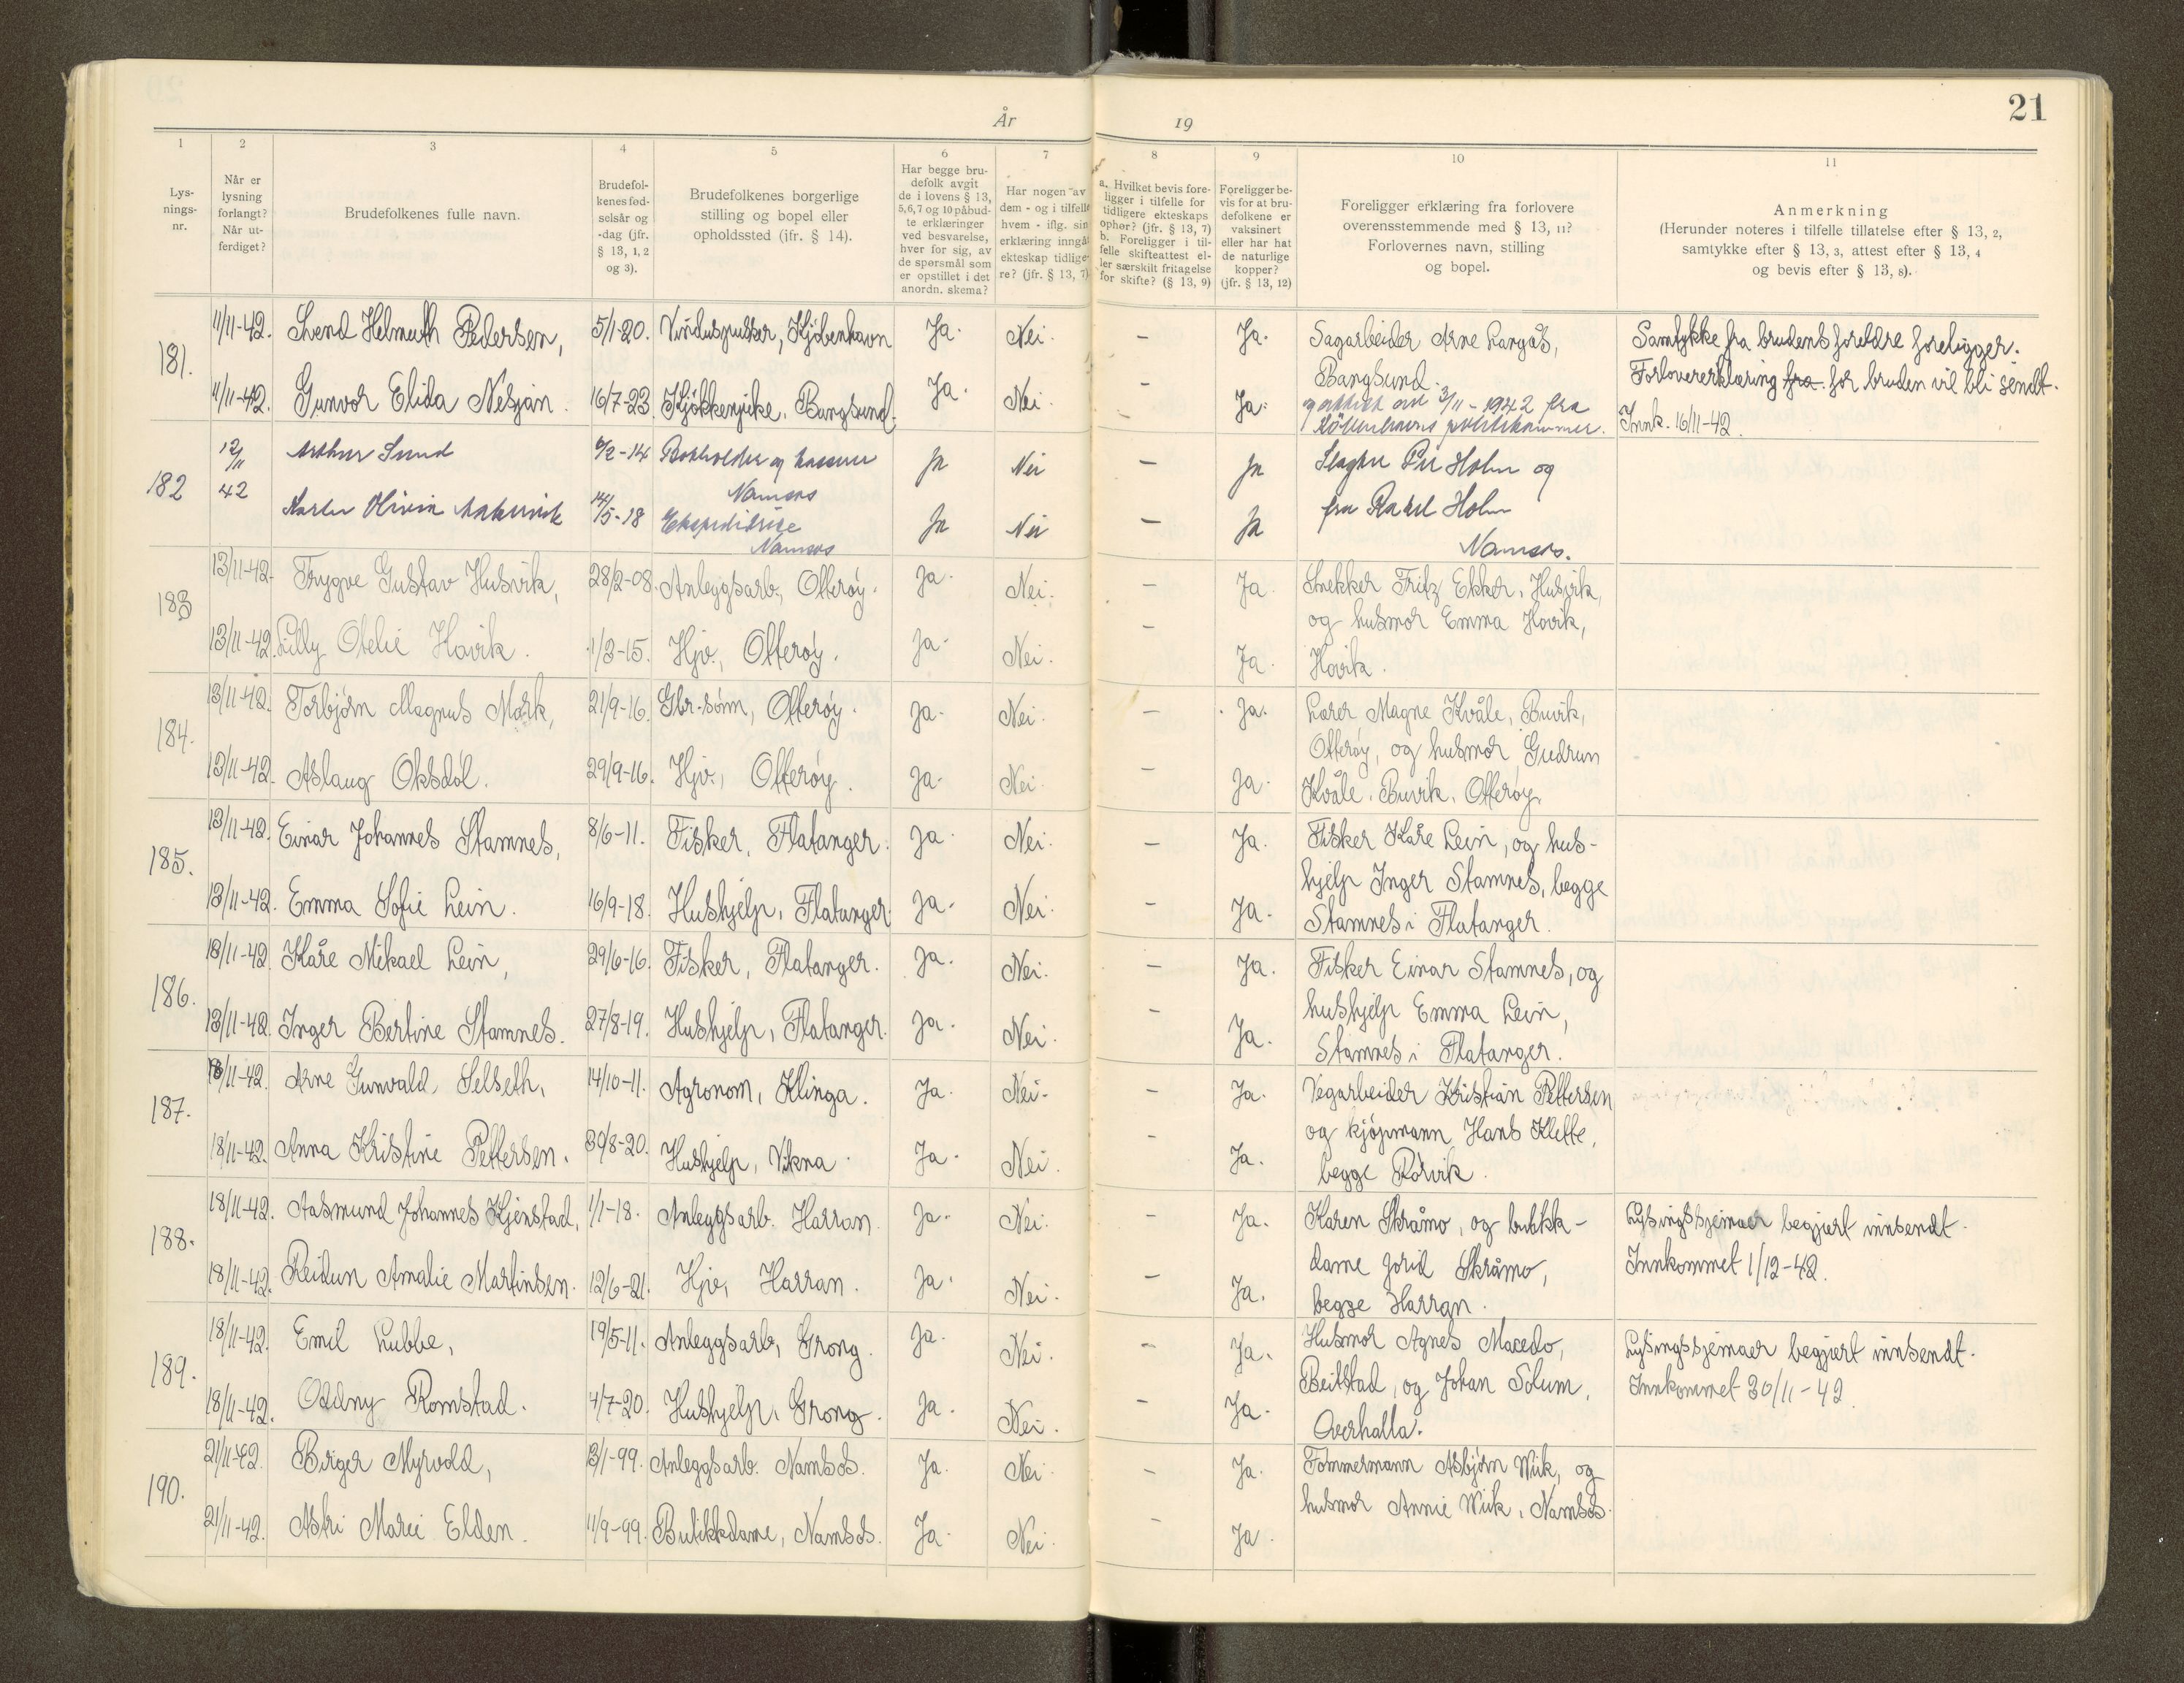 21
År 19
1 2 3 4 5 6 7 8 9 10 11
Lys-
nings-
nr.
Når er
lysning
forlangt?
Når ut-
ferdiget?
Brudefolkenes fulle navn.
Brudefol-
kenes fød-
selsår og
-dag (jfr.
§ 13, 1, 2
og 3).
Brudefolkenes borgerlige
stilling og bopel eller
opholdssted (jfr. § 14).
Har begge bru-
defolk avgit
de i lovens § 13,
5, 6, 7 og 10 påbud-
te erklæringer
ved besvarelse,
hver for sig, av
de spørsmål som
er opstillet i det
anordn. skema?
Har nogen av
dem - og i tilfelle
hvem - iflg. sin
erklæring inngåt
ekteskap tidlige-
re? (jfr. § 13, 7)
a. Hvilket bevis fore-
ligger i tilfelle for
tidligere ekteskaps
ophør? (jfr. § 13, 7)
b. Foreligger i til-
felle skifteattest el-
ler særskilt fritagelse
for skifte? (§ 13, 9)
Foreligger be-
vis for at bru-
defolkene er
vaksinert
eller har hat
de naturlige
kopper?
(jfr. § 13, 12)
Foreligger erklæring fra forlovere
overensstemmende med § 13, 11?
Forlovernes navn, stilling
og bopel.
Anmerkning
(Herunder noteres i tilfelle tillatelse efter § 13, 2,
samtykke efter § 13, 3, attest efter § 13, 4
og bevis efter § 13, 8).
181.
11/11-42. Svend Helmuth Pedersen, 5/1-20. Vinduspusser, Kjøbenhavn Ja. Nei. - Ja.
11/11-42. Gunvor Elida Nesjan. 16/7-23. Kjøkkenpike, Bangsund. Ja. Nei. - Ja.
Sagarbeider Arne Langås,
Bangsund.
og attest av 3/11-1942 fra
Københavns politikammer.
Samtykke fra brudens foreldre foreligger.
Forlovererklæring fra for bruden vil bli sendt.
Innk. 16/11-42.
182
12/11 42
Arthur Lund 6/2-14 Bokholder og kasserer Namsos Ja Nei - Ja
Olivia 14/5-18 Ekspeditrise Namsos Ja Nei - Ja
Holm og
fru Rakel Holm
Namsos.
183
13/11-42. Trygve Gustav Husvik, 28/2-08. Anleggsarb., Otterøy. Ja. Nei. - Ja.
13/11-42. Lilly Otelie Hovik. 1/3-15. Hjv., Otterøy. Ja. Nei. - Ja.
Snekker Fritz Ekker, Husvik,
og husmor Emma Hovik,
Hovik.
184.
13/11-42. Torbjørn Magnus Mork, 21/9-16. Gbr.sønn, Otterøy. Ja. Nei. - Ja.
13/11-42. Aslaug Oksdøl. 29/9-16. Hjv., Otterøy. Ja. Nei. - Ja.
Lærer Magne Kvåle, Buvik,
Otterøy, og husmor Gudrun
Kvåle, Buvik, Otterøy.
185.
13/11-42. Einar Johannes Stamnes, 8/6-11. Fisker, Flatanger. Ja. Nei. - Ja.
13/11-42. Emma Sofie Lein. 16/9-18. Hushjelp, Flatanger. Ja. Nei. - Ja.
Fisker Kåre Lein, og hus-
hjelp Inger Stamnes, begge
Stamnes i Flatanger.
186.
13/11-42. Kåre Mikael Lein, 29/6-16. Fisker, Flatanger. Ja. Nei. - Ja.
13/11-42. Inger Bertine Stamnes. 27/8-19. Hushjelp, Flatanger. Ja. Nei. - Ja.
Fisker Einar Stamnes, og
hushjelp Emma Lein,
Stamnes i Flatanger.
187.
18/11-42. Arne Gunvald Selseth, 14/10-11. Agronom, Klinga. Ja. Nei. - Ja.
18/11-42. Anna Kristine Pettersen. 30/8-20. Hushjelp, Vikna. Ja. Nei. - Ja.
Vegarbeider Kristian Pettersen
og kjøpmann Hans Kleppe,
begge Rørvik.
188.
18/11-42. Aasmund Johannes Kjenstad, 1/1-18. Anleggsarb. Harran. Ja. Nei. - Ja.
18/11-42. Reidun Amalie Martinsen. 12/6-21. Hjv., Harran. Ja. Nei. - Ja.
Karen Skråmo, og butikk-
dame Jorid Skråmo,
begge Harran.
Lysingsskjemaer begjært innsendt.
Innkommet 1/12-42.
189.
18/11-42. Emil Lubbe, 19/5-11. Anleggsarb, Grong. Ja. Nei. - Ja.
18/11-42. Oddny Romstad. 4/7-20. Hushjelp, Grong. Ja. Nei. - Ja.
Husmor Agnes Macedo,
Beitstad, og Johan Solum,
Overhalla.
Lysingsskjemaer begjært innsendt.
Innkommet 30/11-42.
190.
21/11-42. Birger Myrvold, 13/1-99. Anleggsarb. Namsos. Ja. Nei. - Ja.
21/11-42. Astri Marie Elden. 11/9-99. Butikkdame, Namsos. Ja. Nei. - Ja.
Tømmermann Asbjørn Wiik, og
husmor Annie Wiik, Namsos.